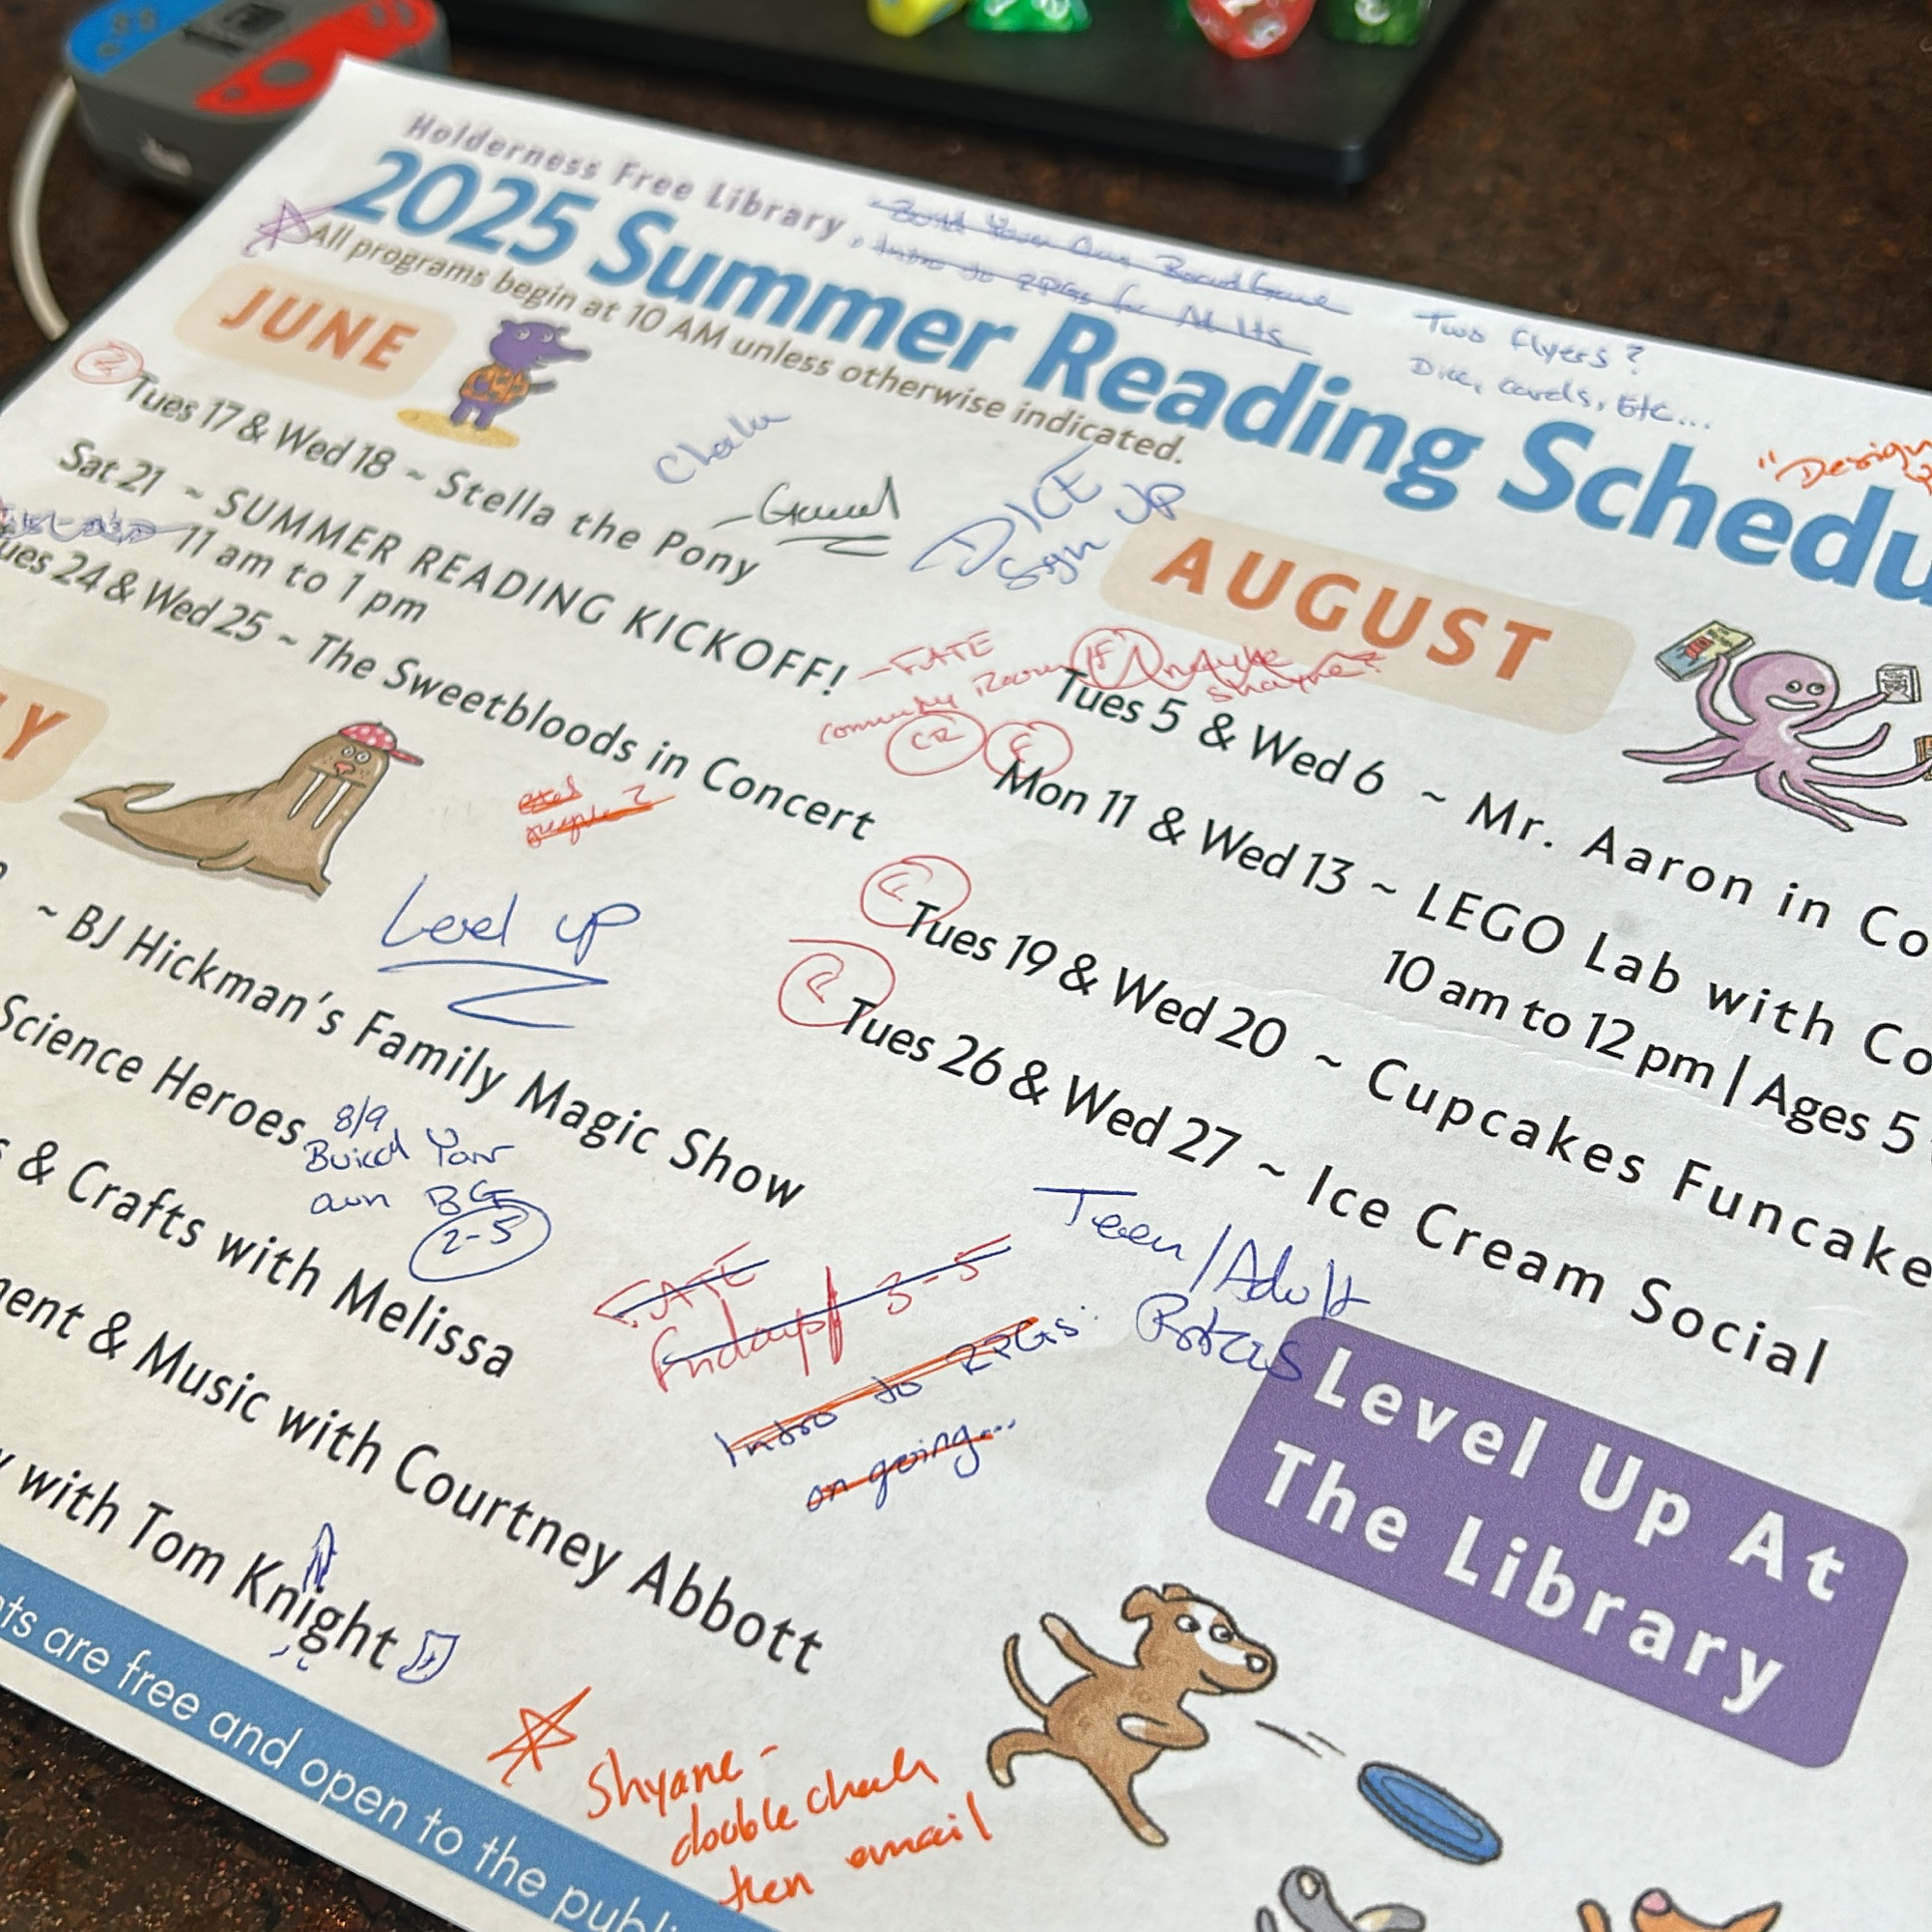 Holderness Free Library
2025 Summer Reading Schedu
All programs begin at 10 AM unless otherwise indicated.
Build Your Own Board Game
Intro to RPGs for Adults
Two flyers?
Dice, cards, Etc...
"Design
JUNE
2
Tues 17 & Wed 18 ~ Stella the Pony
Sat 21 ~ SUMMER READING KICKOFF!
11 am to 1 pm
ues 24 & Wed 25 ~ The Sweetbloods in Concert
DICE
Sign UP
FATE
Community Room
CR
LY
~ BJ Hickman's Family Magic Show
Science Heroes
s & Crafts with Melissa
ment & Music with Courtney Abbott
y with Tom Knight
Level up
8/9
Build Your
own BG
2-5
AUGUST
IF
Tues 5 & Wed 6 ~ Mr. Aaron in Co
Mon 11 & Wed 13 ~ LEGO Lab with Co
10 am to 12 pm | Ages 5
Tues 19 & Wed 20 ~ Cupcakes Funcake
Tues 26 & Wed 27 ~ Ice Cream Social
FATE
Fridays 3-5
Intro to RPGs
on going...
Teen/Adult
Level Up At
The Library
ts are free and open to the publi
Shyane -
double check
then email